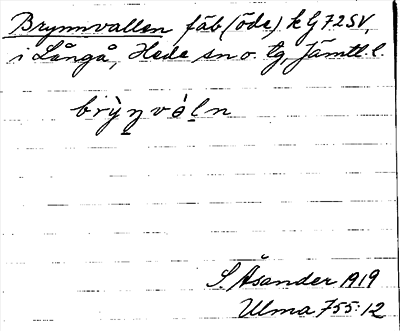 Brynnvallen fäb (öde) k G 72SV,
i Långå, Hede sn o. tg, Jämtl. l.
brỳn̲vàl̲n
S. Åsander 1919
Ulma 755:12